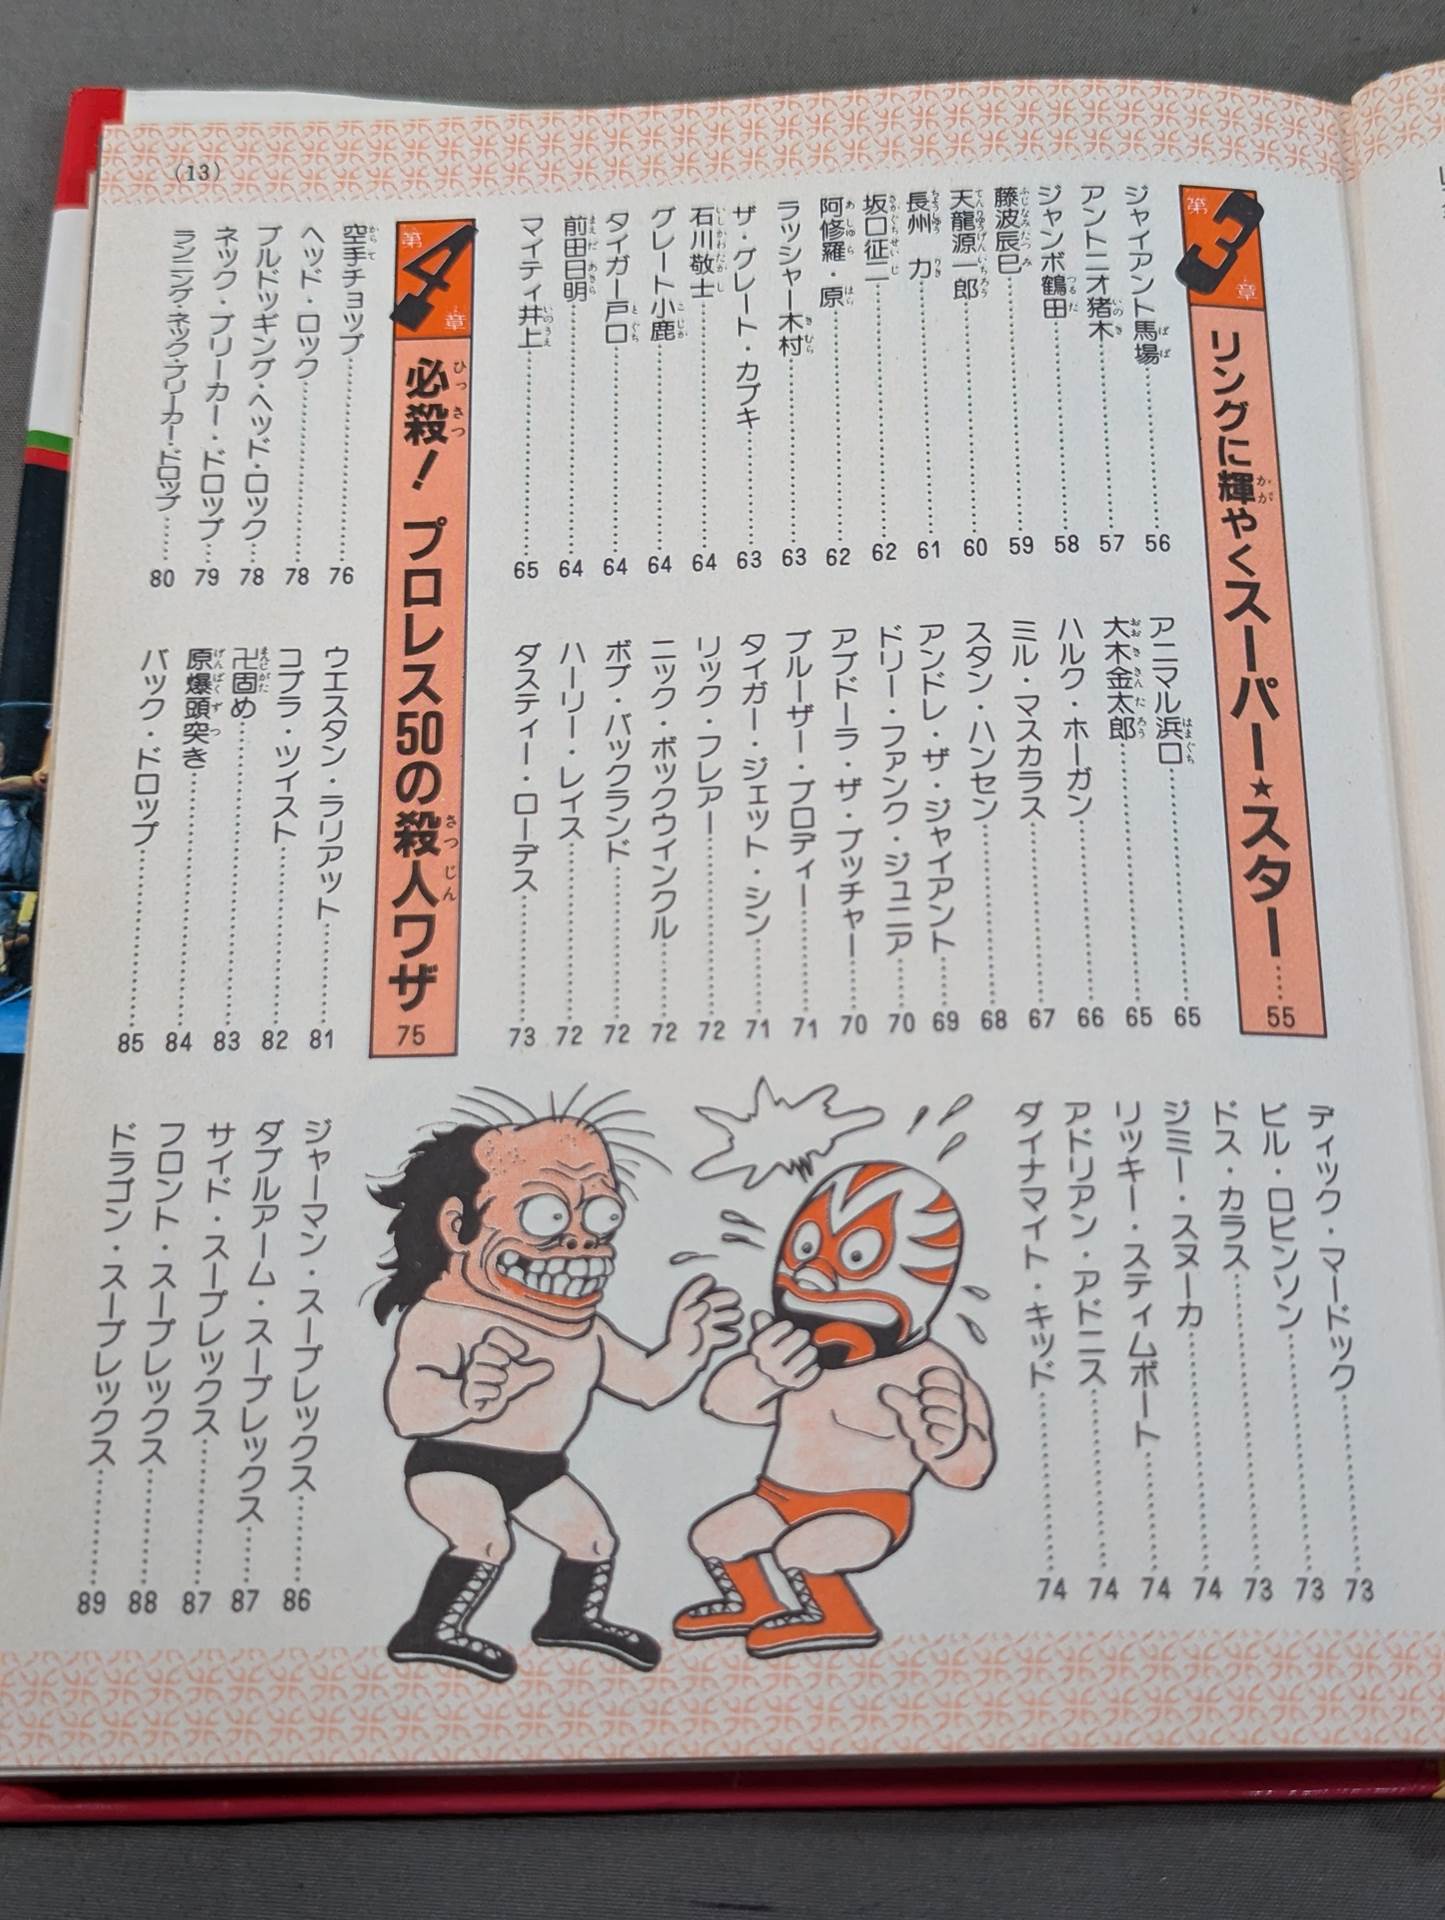 (13)
第3章
リングに輝やくスーパー★スター……55
ジャイアント馬場……56
アントニオ猪木……57
ジャンボ鶴田……58
藤波辰巳……59
天龍源一郎……60
長州 力……61
坂口征二……62
阿修羅・原……62
ラッシャー木村……63
ザ・グレート・カブキ……63
石川敬士……64
グレート小鹿……64
タイガー戸口……64
前田日明……64
マイティ井上……65
アニマル浜口……65
大木金太郎……65
ハルク・ホーガン……66
ミル・マスカラス……67
スタン・ハンセン……68
アンドレ・ザ・ジャイアント……69
ドリー・ファンク・ジュニア……70
アブドーラ・ザ・ブッチャー……70
ブルーザー・ブロディー……71
タイガー・ジェット・シン……71
リック・フレアー……72
ニック・ボックウインクル……72
ボブ・バックランド……72
ハーリー・レイス……72
ダスティー・ローデス……73
ディック・マードック……73
ビル・ロビンソン……73
ドス・カラス……73
ジミー・スヌーカ……74
リッキー・スティムボート……74
アドリアン・アドニス……74
ダイナマイト・キッド……74
第4章
必殺！プロレス50の殺人ワザ 75
空手チョップ……76
ヘッド・ロック……78
ブルドッギング・ヘッド・ロック……78
ネック・ブリーカー・ドロップ……79
ランニング・ネック・ブリーカー・ドロップ……80
ウエスタン・ラリアット……81
コブラ・ツイスト……82
卍固め……83
原爆頭突き……84
バック・ドロップ……85
ジャーマン・スープレックス……86
ダブルアーム・スープレックス……87
サイド・スープレックス……87
フロント・スープレックス……88
ドラゴン・スープレックス……89